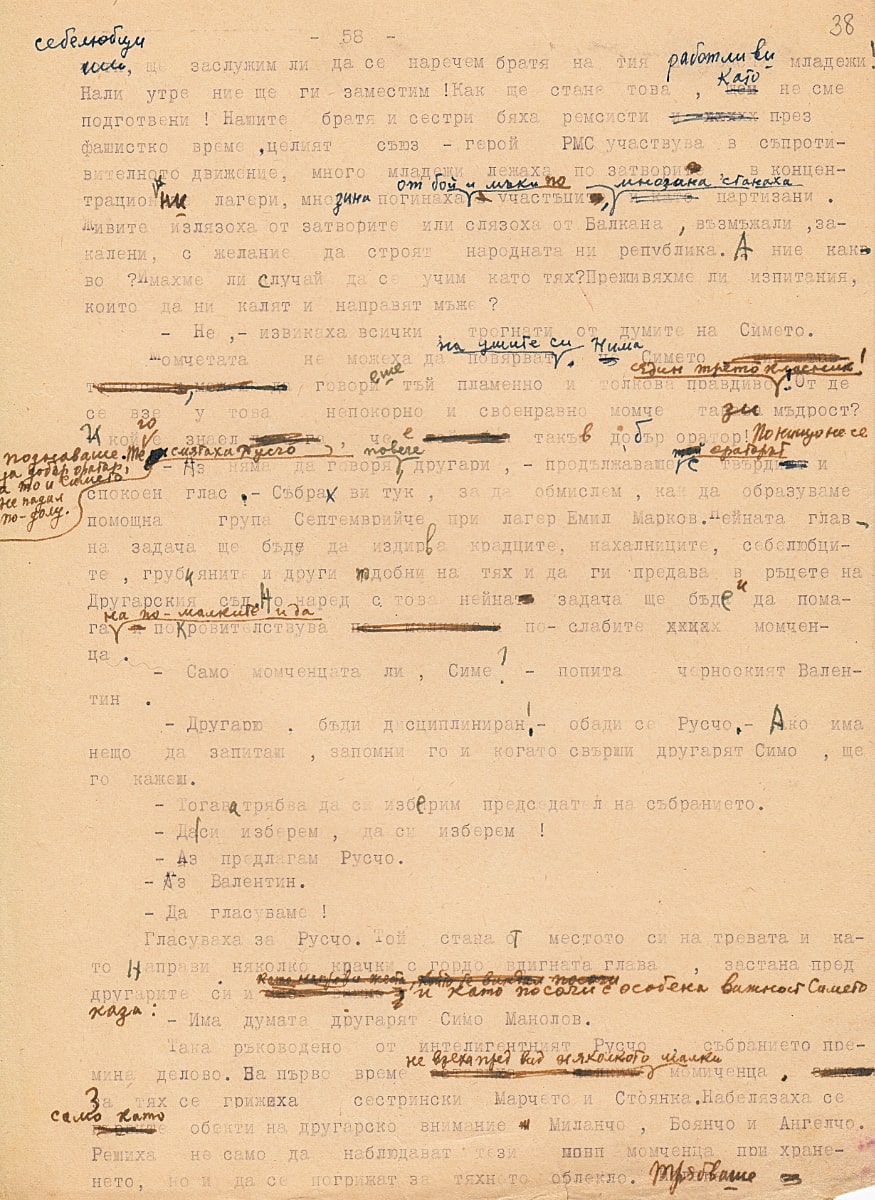 38
- 58 -
себелюбци
или, ще заслужим ли да се наречем братя на тия работливи младежи!
Като
Нали утре ние ще ги заместим ! Как ще стане това , не сме
подготвени ! Нашите братя и сестри бяха ремсисти през
фашистко време ,целият съюз - герой РМС участвува в съпроти-
вителното движение, много младежи лежаха по затворите в концен-
от бой и мъки по мнозина станаха
трационни лагери, мнозина погинаха участъците, партизани .
Живите излязоха от затворите или слязоха от Балкана , възмъжали ,за-
калени, с желание да строят народната ни република. А ние как-
во ?Имахме ли случай да се учим като тях?Преживяхме ли изпитания,
които да ни калят и направят мъже ?
- Не ,- извикаха всички , трогнати от думите на Симето.
на ушите си Нима
Момчетата не можеха да повярват Симето
един третокласник!
говори още тъй пламенно и толкова правдиво! От де
се взе у това непокорно и своенравно момче тази мъдрост?
И кой го знаел , че е такъв добър оратор! По нищо не се
познаваше. Те смятаха Русчо повече ораторът
за добър оратор,
а то и Симето
не падал
по-долу.
- Аз няма да говоря другари , - продължаваше с твърд и
спокоен глас .- Събрах ви тук , за да обмислем , как да образуваме
помощна група Септемврийче при лагер Емил Марков. Нейната глав-
на задача ще бъде да издирва крадците, нахалниците, себелюбци-
те , грубияните и други подобни на тях и да ги предава в ръцете на
Другарския съд. Но наред с това нейна задача ще бъде и да пома-
на по-малките и да
га покровителствува по- слабите момчен-
ца .
- Само момченцата ли , Симе ? - попита черноокият Вален-
тин .
- Другарю . бъди дисциплиниран!- обади се Русчо.- Ако има
нещо да запиташ , запомни го и когато свърши другарят Симо , ще
го кажеш.
- Тогава трябва да си изберим председател на събранието.
- Да си изберем , да си изберем !
- Аз предлагам Русчо.
- Аз Валентин.
- Да гласуваме !
Гласуваха за Русчо. Той стана от местото си на тревата и ка-
то направи няколко крачки с гордо вдигната глава , застана пред
другарите си и като посочи с особена важност Симето
каза:
- Има думата другарят Симо Манолов.
Така ръководено от интелигентният Русчо събранието пре-
не взеха пред вид няколкото малки
мина делово. На първо време момиченца .
За тях се грижеха сестрински Марчето и Стоянка. Набелязаха се
само като
обекти на другарско внимание Миланчо , Боянчо и Ангелчо.
Решиха не само да наблюдават тези момченца при хране-
нето, но и да се погрижат за тяхното облекло. Трябваше